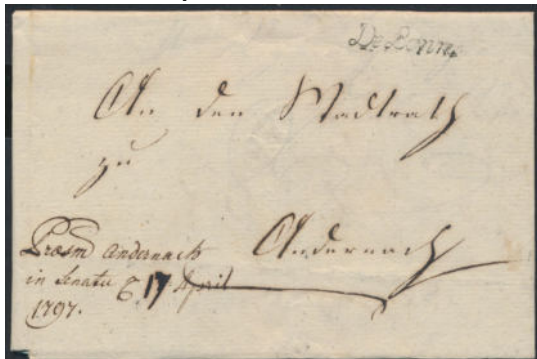 De Bonn
An den Stadtrath
zu
Andernach
Præsm Andernach
in Senatu 17 April
1797.